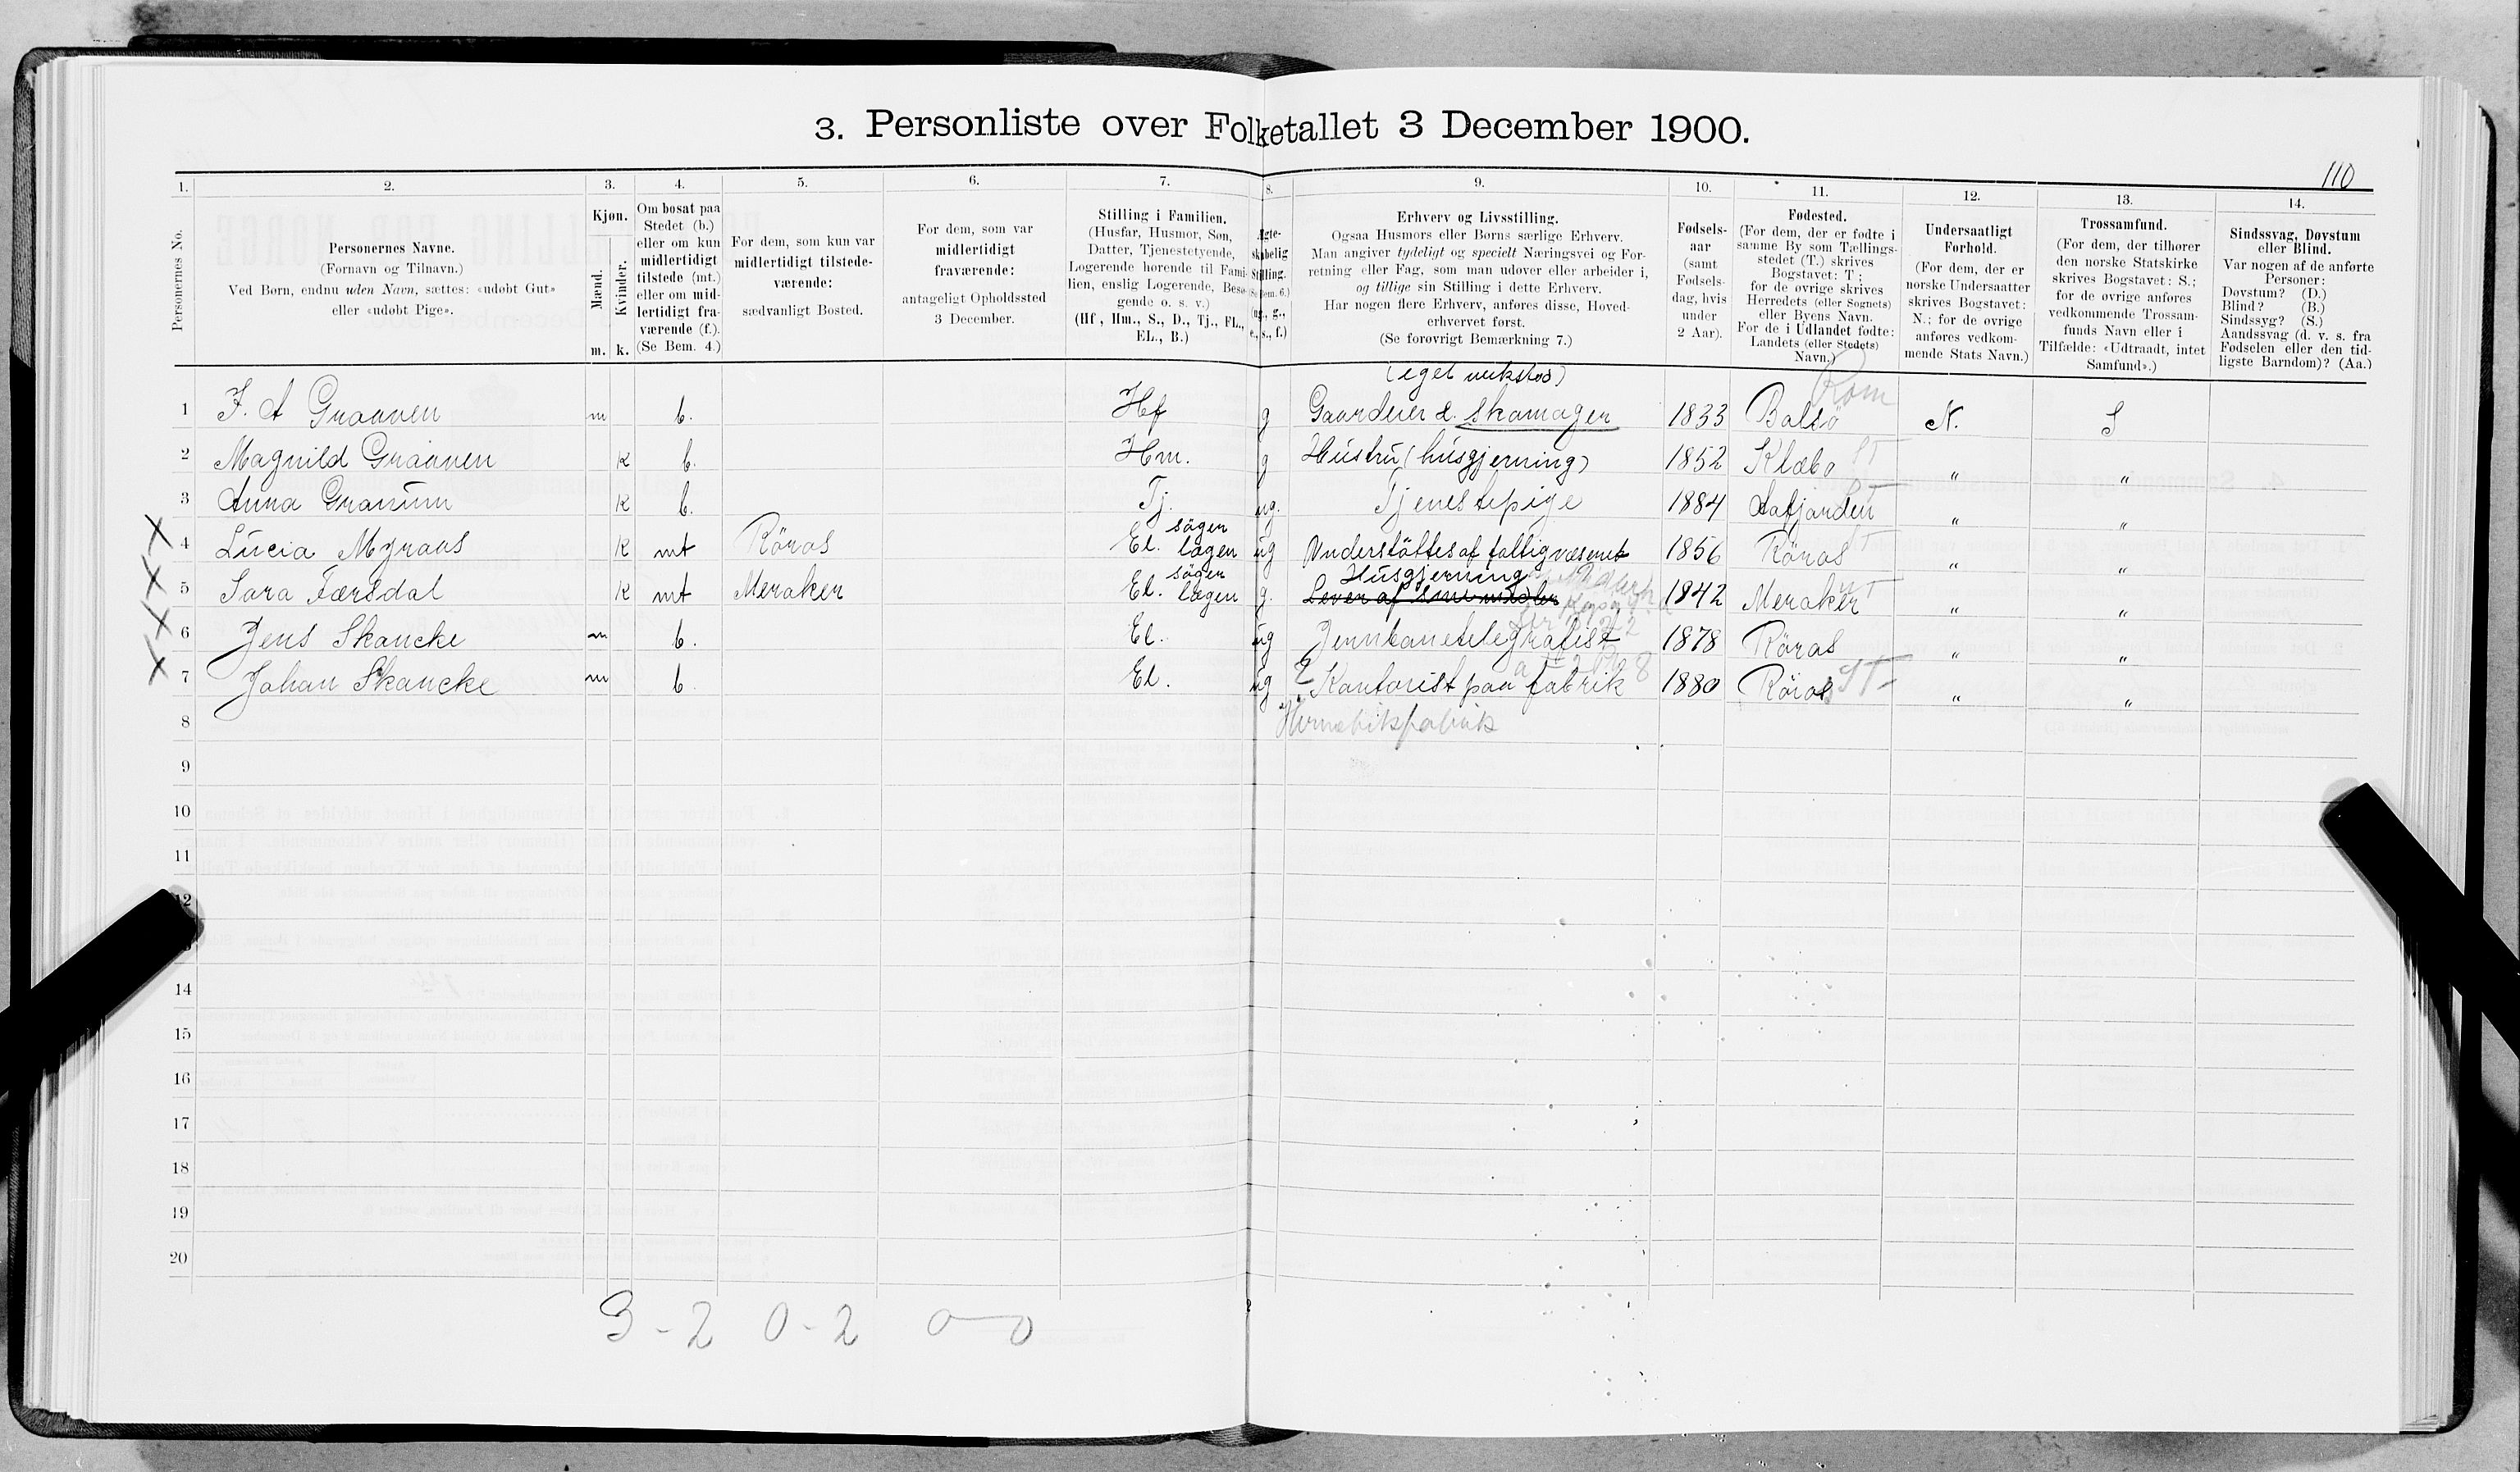 3. Personliste over Folketallet 3 December 1900.
110
1. 2. 3. 4. 5. 6. 7. 8. 9. 10. 11. 12. 13. 14.
Personernes No.
Personernes Navne.
(Fornavn og Tilnavn.)
Ved Børn, endnu uden Navn, sættes: «udøbt Gut»
eller «udøbt Pige».
Kjøn.
Mænd.
Kvinder.
m. k.
Om bosat paa
Stedet (b.)
eller om kun
midlertidigt
tilstede (mt.)
eller om mid-
lertidigt fra-
værende (f.).
(Se Bem. 4.)
For dem, som kun var
midlertidigt tilstede-
værende:
sædvanligt Bosted.
For dem, som var
midlertidigt
fraværende:
antageligt Opholdssted
3 December.
Stilling i Familien.
(Husfar, Husmor, Søn,
Datter, Tjenestetyende,
Logerende hørende til Fami-
lien, enslig Logerende, Besø-
gende o. s. v.)
(Hf, Hm., S., D., Tj., FL.,
EL., B.)
Ægte-
skabelig
Stilling.
(Se Bem. 6.)
(ug., g.,
e., s., f.)
Erhverv og Livsstilling.
Ogsaa Husmors eller Børns særlige Erhverv.
Man angiver tydeligt og specielt Næringsvei og For-
retning eller Fag, som man udøver eller arbeider i,
og tillige sin Stilling i dette Erhverv.
Har nogen flere Erhverv, anføres disse, Hoved-
erhvervet først.
(Se forøvrigt Bemærkning 7.)
Fødsels-
aar
(samt
Fødsels-
dag, hvis
under
2 Aar).
Fødested.
(For dem, der er fødte i
samme By som Tællings-
stedet (T.) skrives
Bogstavet: T;
for de øvrige skrives
Herredets (eller Sognets)
eller Byens Navn.
For de i Udlandet fødte:
Landets (eller Stedets)
Navn.)
Undersaatligt
Forhold.
(For dem, der er
norske Undersaatter
skrives Bogstavet:
N.; for de øvrige
anføres vedkom-
mende Stats Navn.)
Trossamfund.
(For dem, der tilhører
den norske Statskirke
skrives Bogstavet: S.;
for de øvrige anføres
vedkommende Trossam-
funds Navn eller i
Tilfælde: «Udtraadt, intet
Samfund».)
Sindssvag, Døvstum
eller Blind.
Var nogen af de anførte
Personer:
Døvstum? (D.)
Blind? (B.)
Sindssyg? (S.)
Aandssvag (d. v. s. fra
Fødselen eller den tid-
ligste Barndom)? (Aa.)
(eget verksted)
Rom
1 J. A Graaven m b. Hf g Gaardeier & skomager 1833 Balsö N. S
2 Magnild Graaven k b. Hm. g Hustru (husgjerning) 1852 Klæbo ST " "
3 Anna Granum k b. Tj. ug. Tjenestepige 1884 Aafjorden " "
söger
X 4 Lucia Myraas k mt Röros El. lægen ug Understöttes af fattigvæsenet 1856 Röros ST " "
söger Husgjerning
X 5 Sara Færsdal k mt Meraker El. lægen g. Lever af sine midler 1842 Meraker " "
X 6 Jens Skancke m b. El. ug Jernbanetelegrafist 1878 Röros " "
X 7 Johan Skancke m b El. ug Kontorist paa fabrik 1880 Röros ST " "
8
9
10
11
12
14
15
16
17
18
19
20
3 - 2 0 - 2 0 — 0